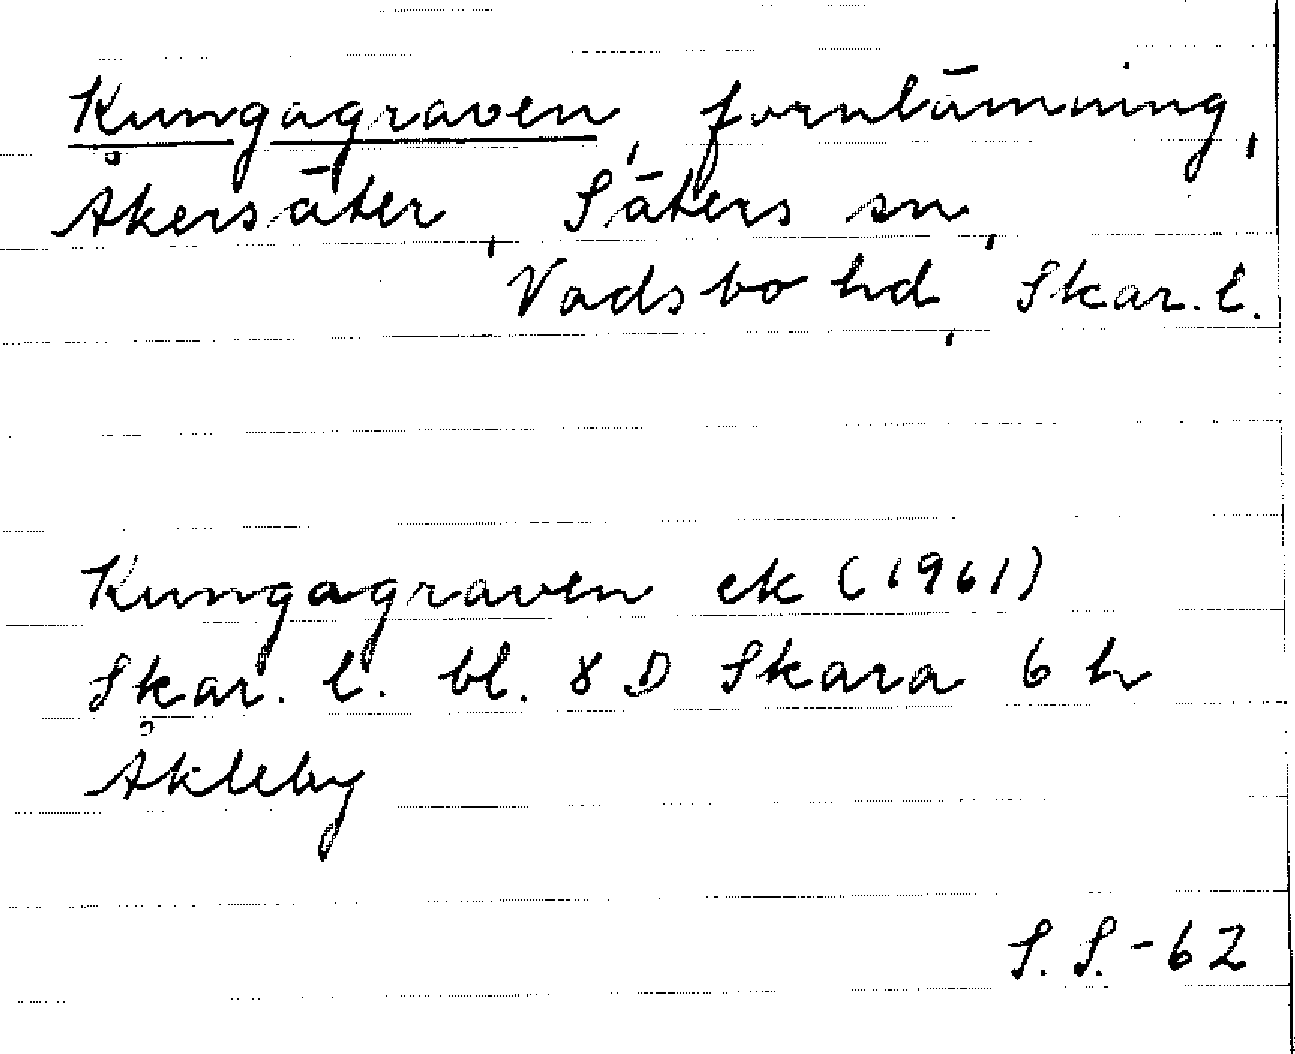 Kungagraven, fornlämning,
Åkersäter, Säters sn,
Vadsbo hd, Skar. l.
Kungagraven ek (1961)
Skar. l. bl. 8 D Skara 6 h
Åkleby
S. S. - 62